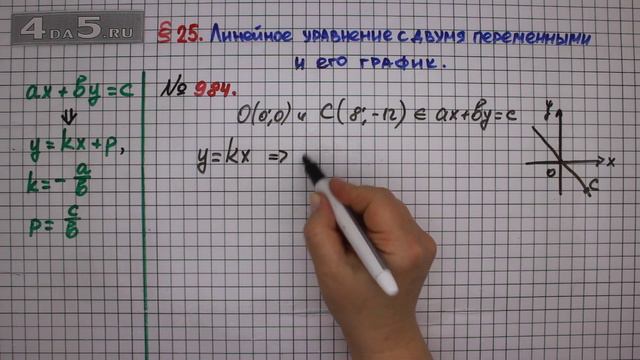 4DA5.RU
§ 25. Линейное уравнение с двумя переменными
и его график.
ax+by=c
⇓
y=kx+p,
k=-a/b
p=c/b
№ 984.
O(0;0) и C(8;-12) ∈ ax+by=c
y=kx ⇒
y
x
O
C